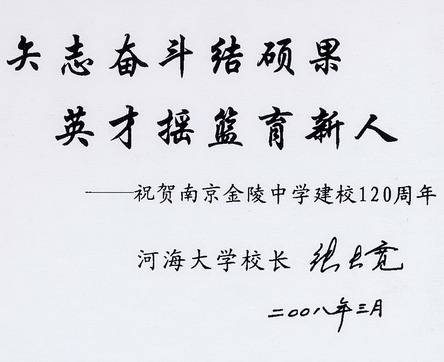 矢志奋斗结硕果
英才摇篮育新人
——祝贺南京金陵中学建校120周年
河海大学校长 张长宽
二〇〇八年三月